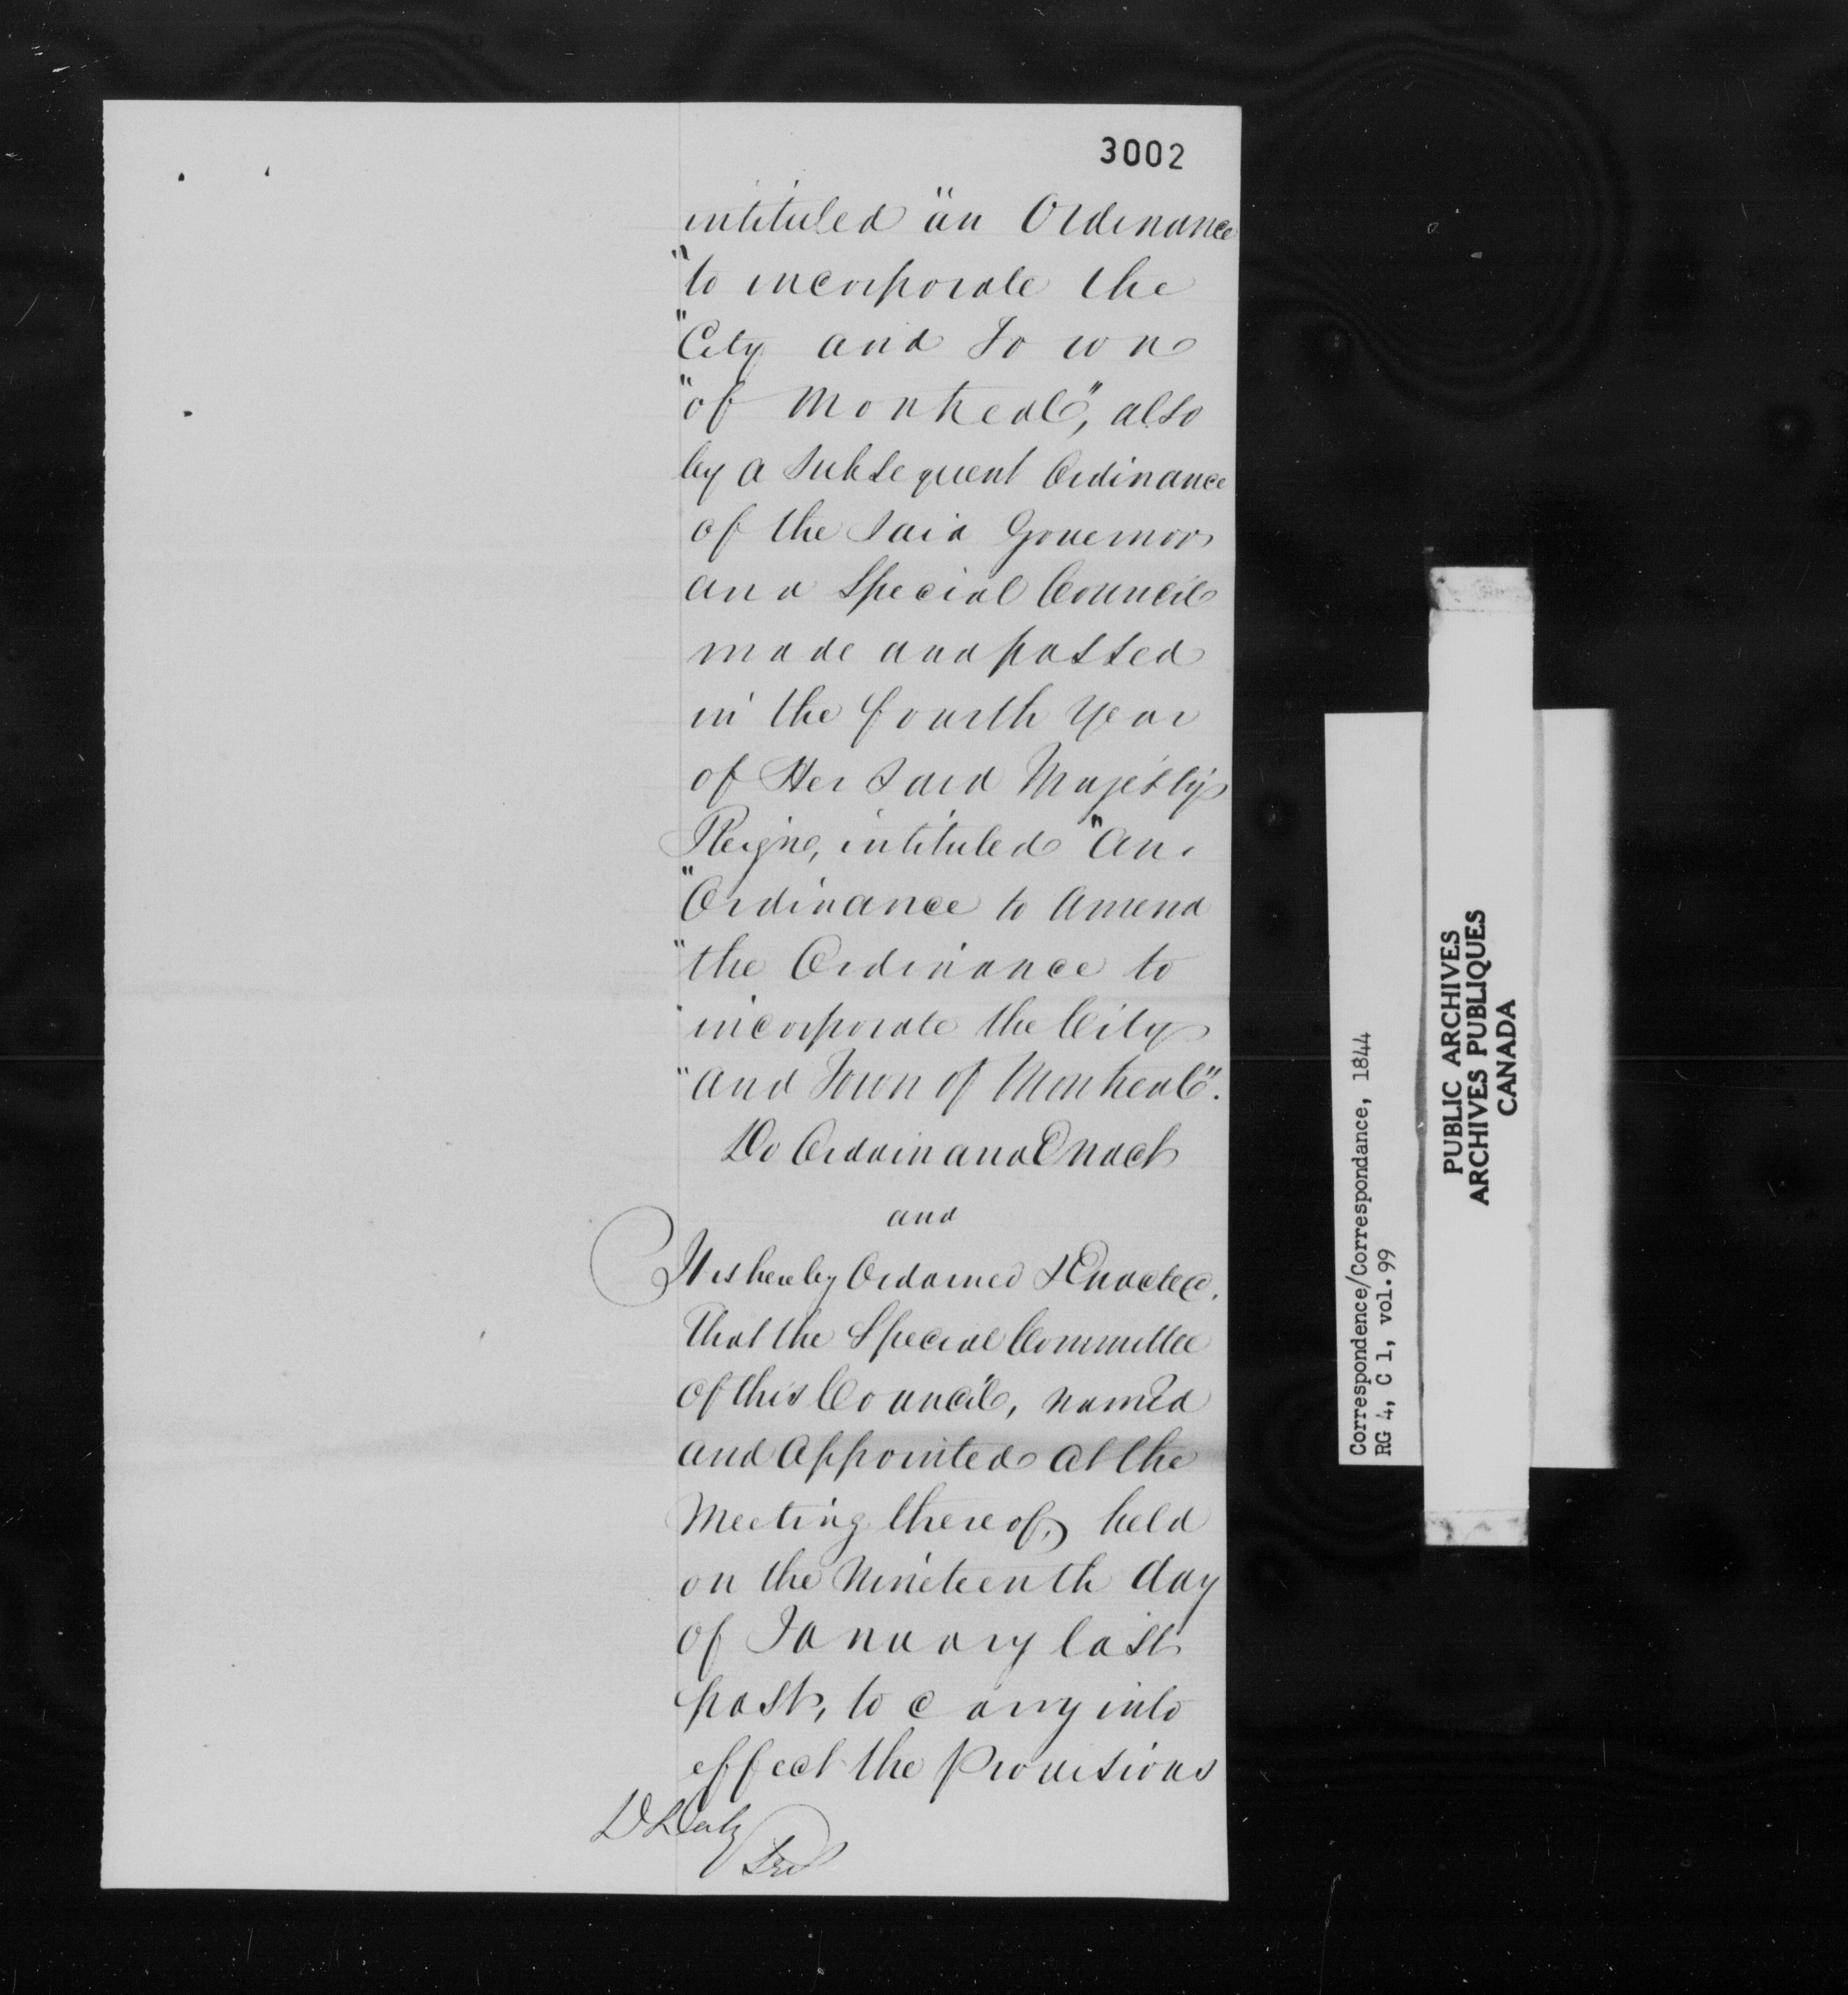 3002
intituled "an Ordinance
"to incorporate the
"City and Town
"of Montreal", also
by a Subsequent Ordinance
of the Said Governor
and Special Council
made and passed
in the fourth Year
of Her Said Majesty's
Reign, intituled "An
"Ordinance to Amend
"the Ordinance to
"incorporate the City
"and Town of Montreal".
Do Ordain and Enact
and
It is hereby Ordained & Enacted,
That the Special Committee
of this Council, named
and Appointed at the
Meeting thereof, held
on the Nineteenth day
of January last
past, to carry into
effect the Provisions
D Daly
Correspondence/Correspondance, 1844
RG 4, C 1, vol. 99
PUBLIC ARCHIVES
ARCHIVES PUBLIQUES
CANADA